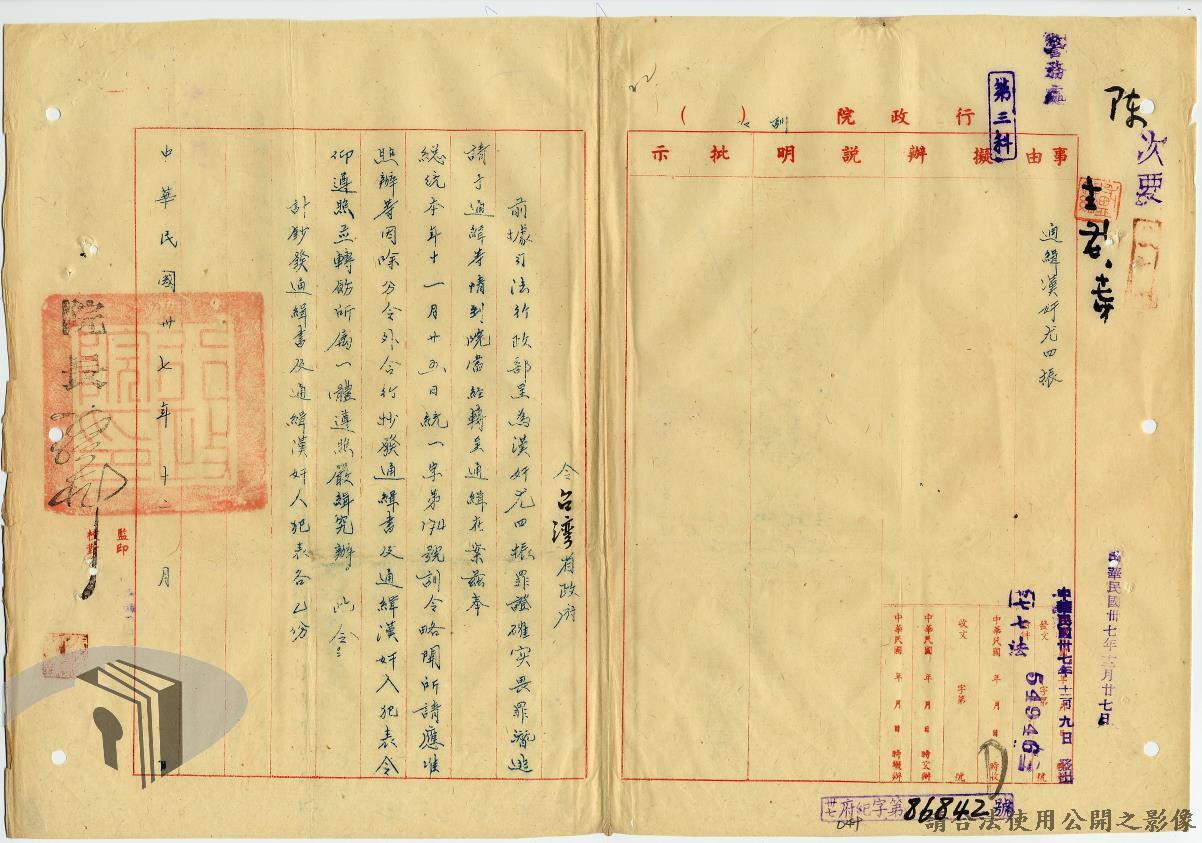 陈
次要
警務處
第三科
行政院訓令（ ）
事由
擬辦
說明
批示
通緝漢奸尤四振
中華民國卅七年十二月廿七日
中華民國卅七年十二月九日發出
發文
字第
號
七法
54946
收文
字第
號
中華民國 年 月 日 時收
中華民國 年 月 日 時交辦
中華民國 年 月 日 時擬辦
卅七府紀字第86842號
令台湾省政府
前據司法行政部呈為漢奸尤四振罪證確实畏罪潛逃
請予通緝等情到院當經轉呈通緝在案茲奉
總統本年十一月廿五日統一字第174號訓令略開所請應准
照辦等因除分令外合行抄發通緝書及通緝漢奸人犯表令
仰遵照並轉飭所屬一體遵照嚴緝究辦 此令
計鈔發通緝書及通緝漢奸人犯表各乙份
中華民國卅七年十二月 日
院長
監印
校對
請合法使用公開之影像